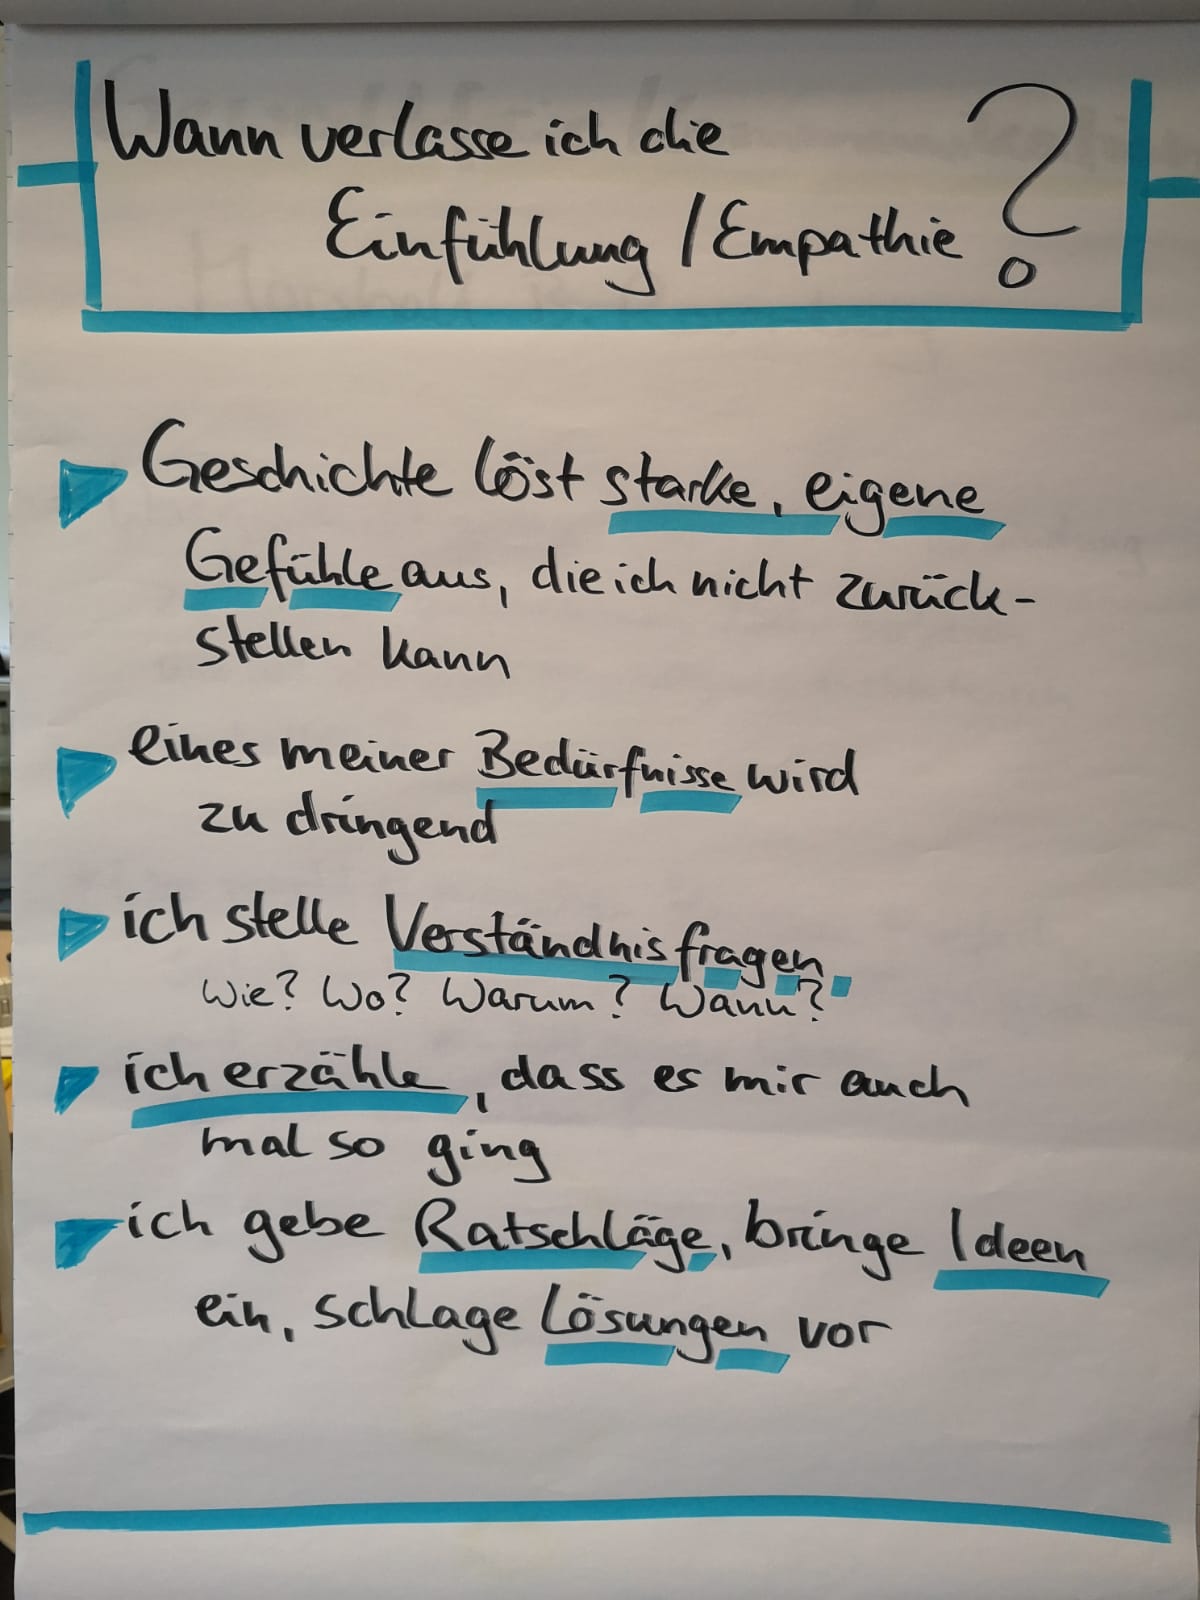 Wann verlasse ich die
Einfühlung / Empathie ?
Geschichte löst starke, eigene
Gefühle aus, die ich nicht zurück-
stellen kann
eines meiner Bedürfnisse wird
zu dringend
ich stelle Verständnisfragen.
Wie? Wo? Warum? Wann?
ich erzähle, dass es mir auch
mal so ging
ich gebe Ratschläge, bringe Ideen
ein, schlage Lösungen vor